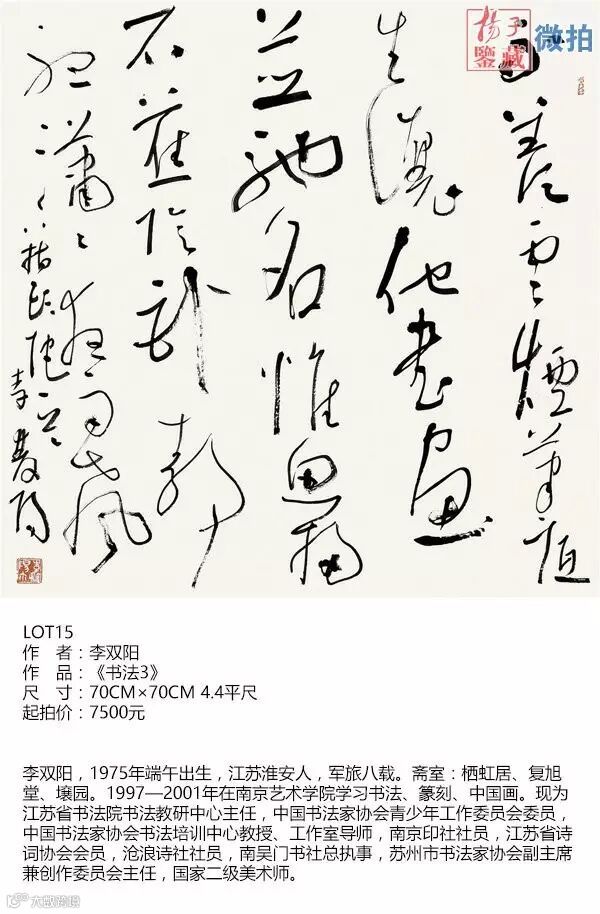 揚子
鑒藏
微拍
自羡雲煙筆
生 他書畫
並馳名惟思
石蕉陰卧静
聽瀟瀟 雨風
李雙陽
LOT15
作 者：李双阳
作 品：《书法3》
尺 寸：70CM×70CM 4.4平尺
起拍价：7500元
李双阳，1975年端午出生，江苏淮安人，军旅八载。斋室：栖虹居、复旭
堂、壌园。1997—2001年在南京艺术学院学习书法、篆刻、中国画。现为
江苏省书法院书法教研中心主任，中国书法家协会青少年工作委员会委员，
中国书法家协会书法培训中心教授、工作室导师，南京印社社员，江苏省诗
词协会会员，沧浪诗社社员，南吴门书社总执事，苏州市书法家协会副主席
兼创作委员会主任，国家二级美术师。
大数跨境